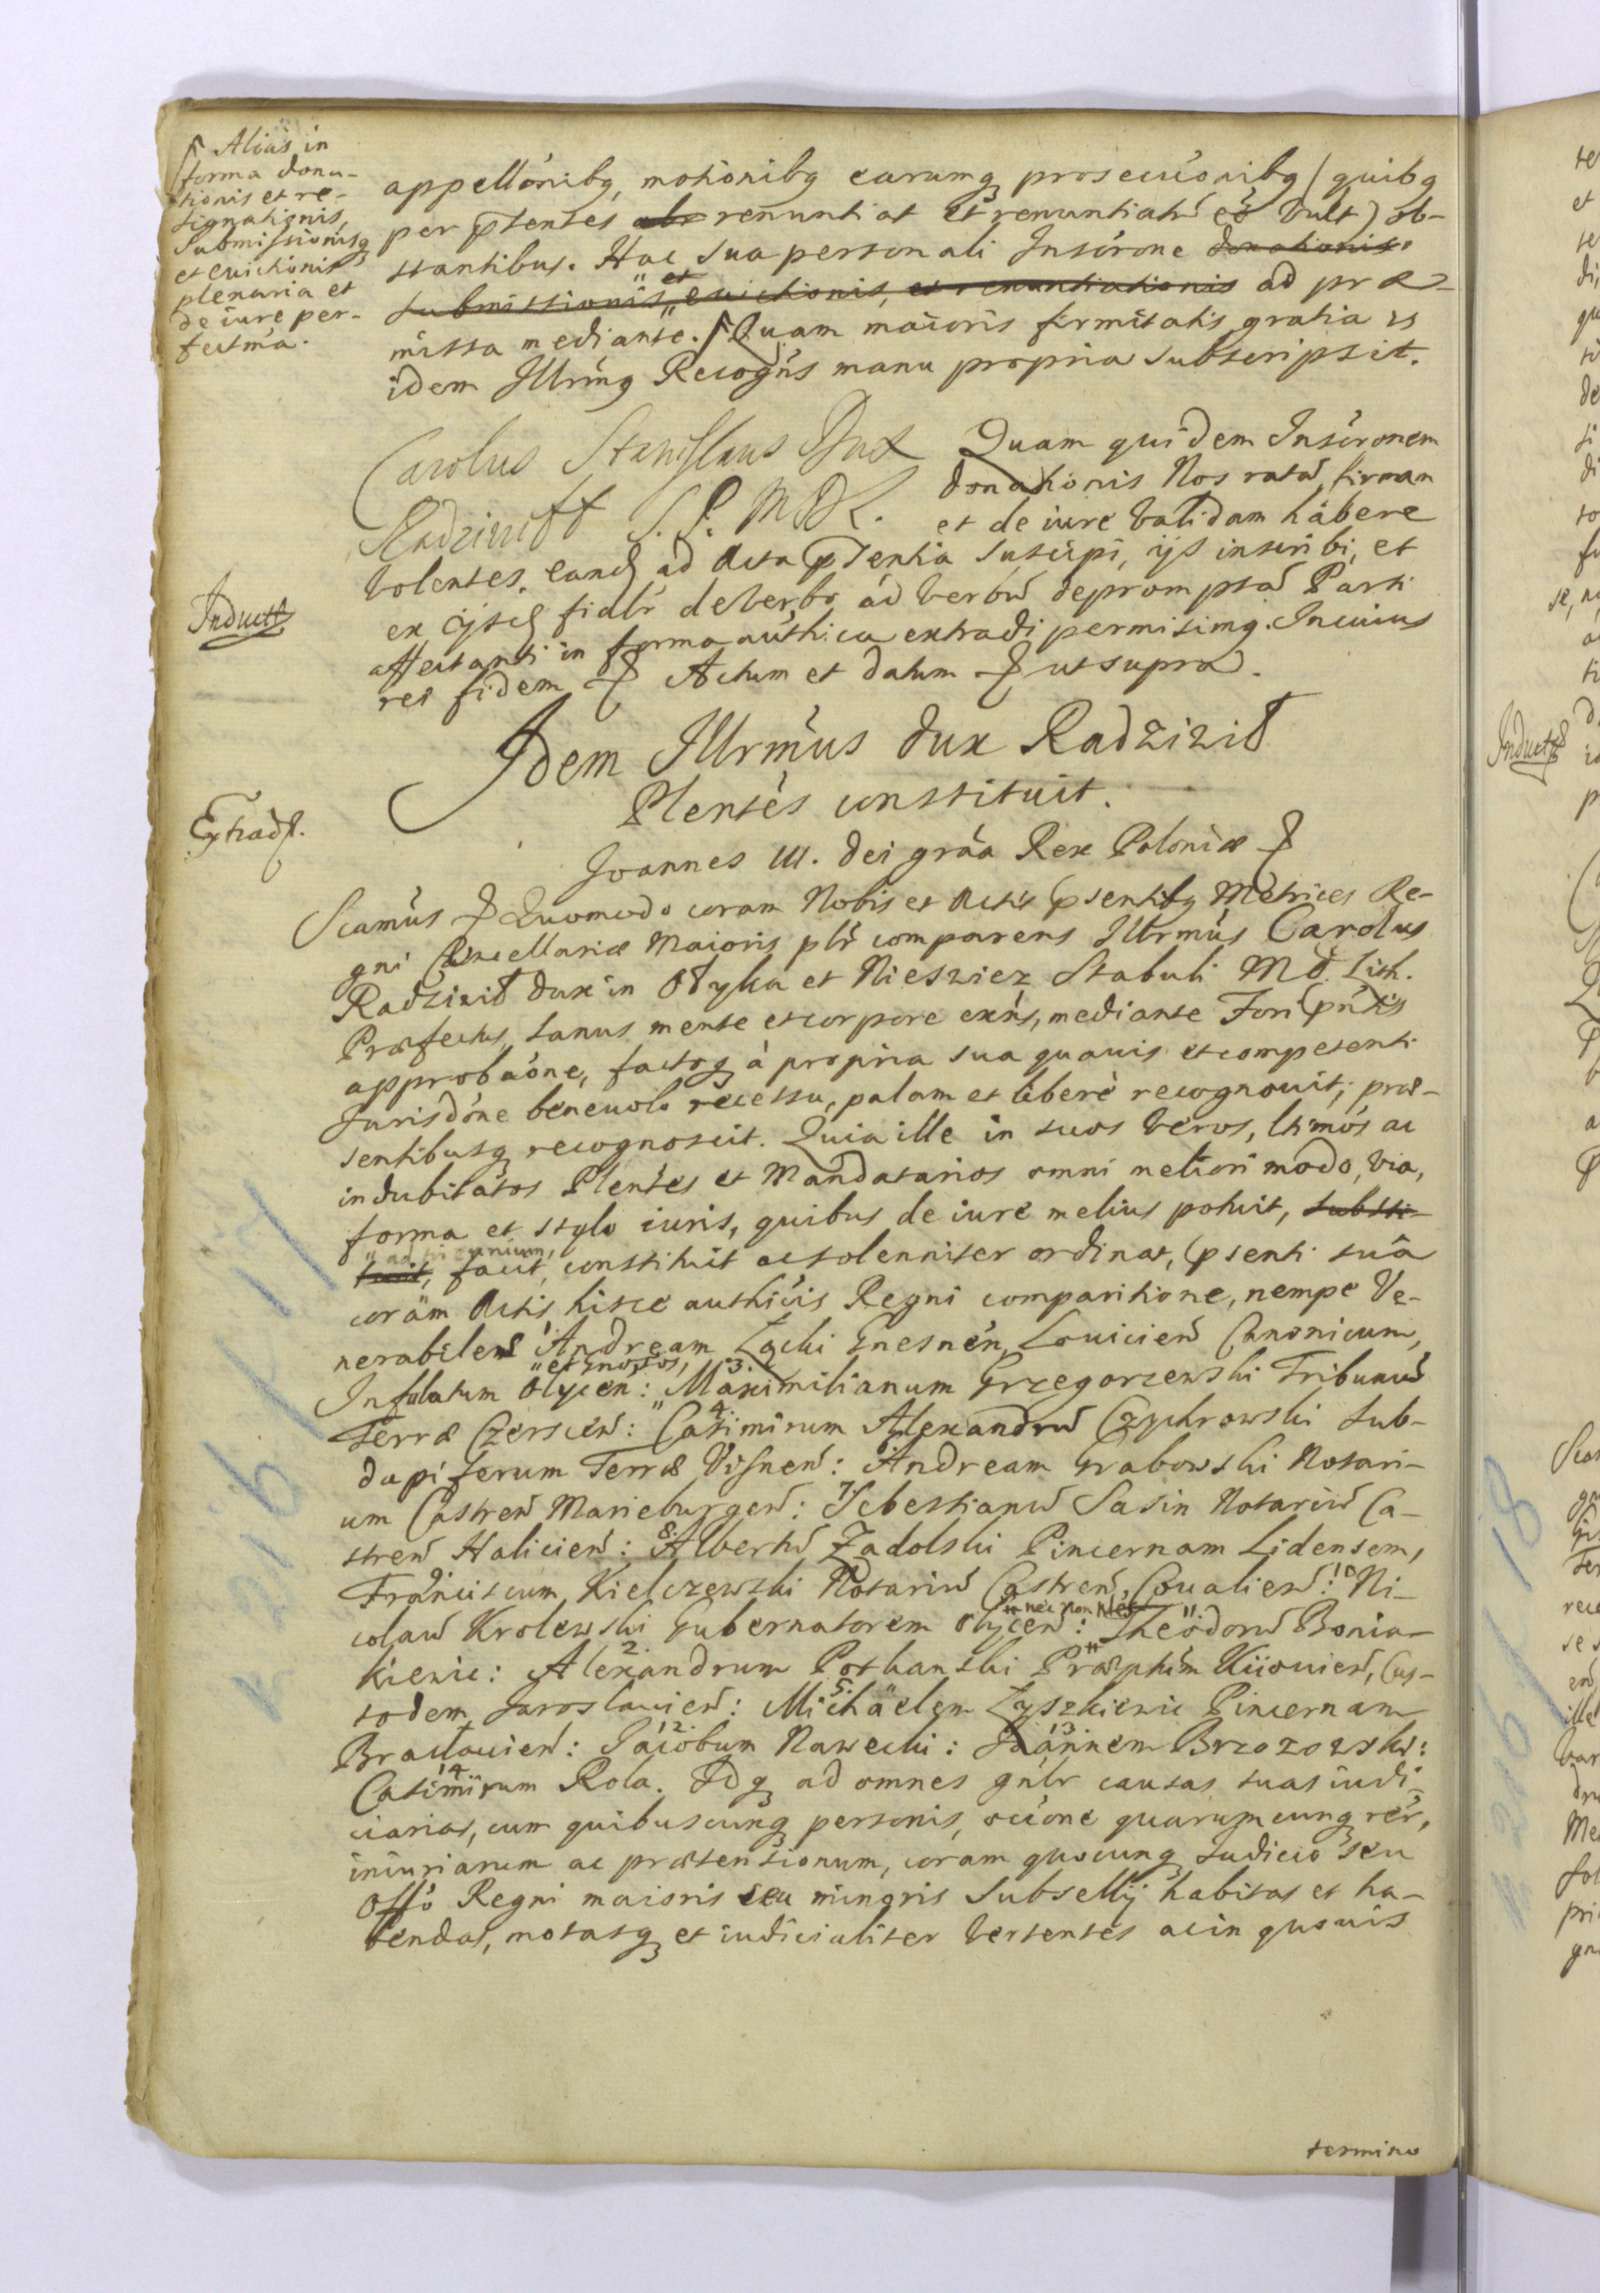 Aliàs in
forma dona-
tionis et re-
signationis,
Submissionisq
et euictionis
plenaria et
de iure per-
fectma.
appellonibq, motionibq earumq prosecuionibq (quibq
per pntentes abr renuntiat et renuntiatū eē vult) ob-
stantibus. Hac sua personali Inscrōne donationis
submissionis, et euictionis, et renuntiationis ad præ-
missa mediante. Quam maioris firmitatis gratia is
idem Illrmq Recogns manu propria subscripsit.
Carolus Stanislaus Dux
Radziwiłł S. P. M D L.
Quam quidem Inscrōnem
donationis Nos ratā, firmam
et de iure validam habere
volentes, eandē ad Acta pntentia suscipi, ijs inscribi, et
ex ijsdē fidlr de verbo ad verbū depromptā Parti
affectanti in forma authica extradi permisimq. In cuius
rei fidem Actum et datum ut supra.
Inducta
Idem Illrmus dux Radziwił
Plentes constituit.
Extradf.
Joannes III. dei grãa Rex Poloniæ
Scamus Quomodo coram Nobis et Actis psentibq Metrices Re-
gni Cancellariæ Maioris plr comparens Illrmus Carolus
Radziwił dux in Ołyka et Nieswiez Stabuli M D. Lith.
Præfectus, sanus mente et corpore exns, mediante Fori pntis
approbaōne, factoq à propria sua quauis et competenti
Jurisdōne beneuolo recessu, palam et liberè recognouit, præ-
sentibusq recognoscit. Quia ille in suos veros, ltimos ac
indubitatos Plentes et Mandatarios omni meliori modo, via,
forma et stylo iuris, quibus de iure melius potuit, substi-
tuit, facit, constituit ac solenniter ordinat, psenti suâ
coram Actis hisce authicis Regni comparitione, nempe Ve-
nerabilem 1 Andream Łącki Gnesnen, Louicien Canonicum,
Infulatum Olycen: et Gnosos, 3. Maximilianum Grzegorzewski Tribunū
Terræ Czerscen: 4. Casimirum Alexandrū Czychrowski Sub-
dapiferum Terræ Visnen: 6. Andream Grabowski Notari-
um Castren Marieburgen: 7. Sebestianū Sasin Notariū Ca-
stren Halicien: 8. Albertū Zadolski Pincernam Lidensem,
9. Franciscum Kielczewski Notariū Castren, Coualien: 10 Ni-
colaū Krolewski Gubernatorem Olycen: nec non 11. Theodorū Bonia-
kienic: 2. Alexandrum Pothanski Præptum Kiiouien, Cus-
todem Jaroslauien: 5. Michaelem Łyszkienic Pincernam
Bracłauien: 12. Jacobum Nawecki: 13. Joannem Brzozowski:
14. Casimirum Rola. Idq ad omnes gnlr causas suas iudi-
ciarias, cum quibuscunq personis, oc̄cione quarumcunq rer,
iniuriarum ac prætensionum, coram quocunq Judicio seu
Offo Regni maioris seu minoris Subsellij habitas et ha-
bendas, motasq et iudicialiter vertentes ac in quouis
termino
Inducta